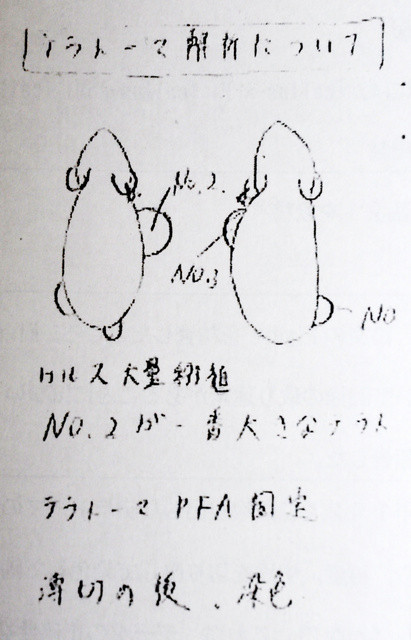 テラトーマ解析について
No.2
No.3
No
ホルス大量移植
NO.2が一番大きなテラト
テラトーマ PFA固定
薄切の後、染色